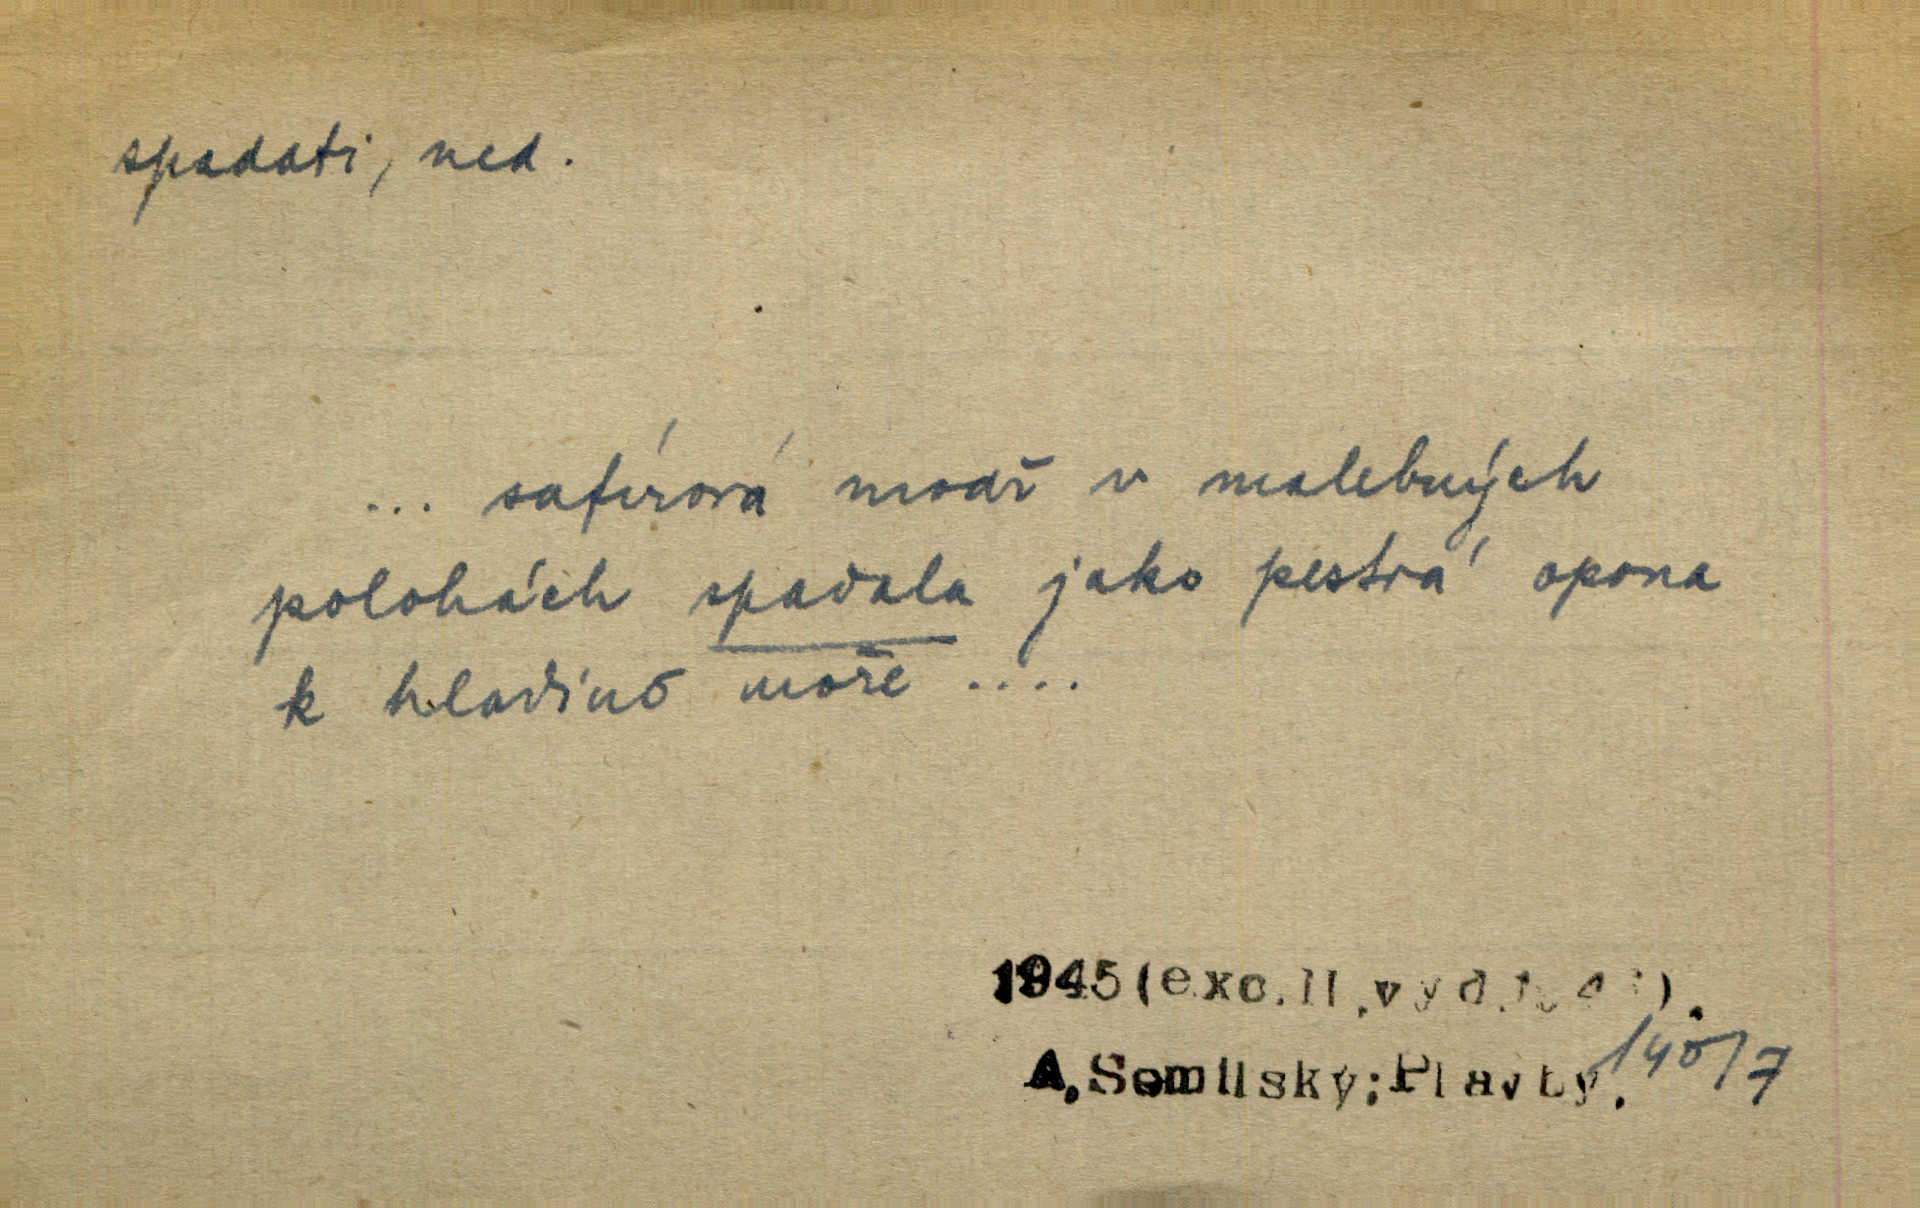 spadati, ned.
... safírová modř v malebných
polohách spadala jako pestrá opona
k hladině moře ....
1945 (exc. II. vyd.
A. Semilský: Plavby. 140/7